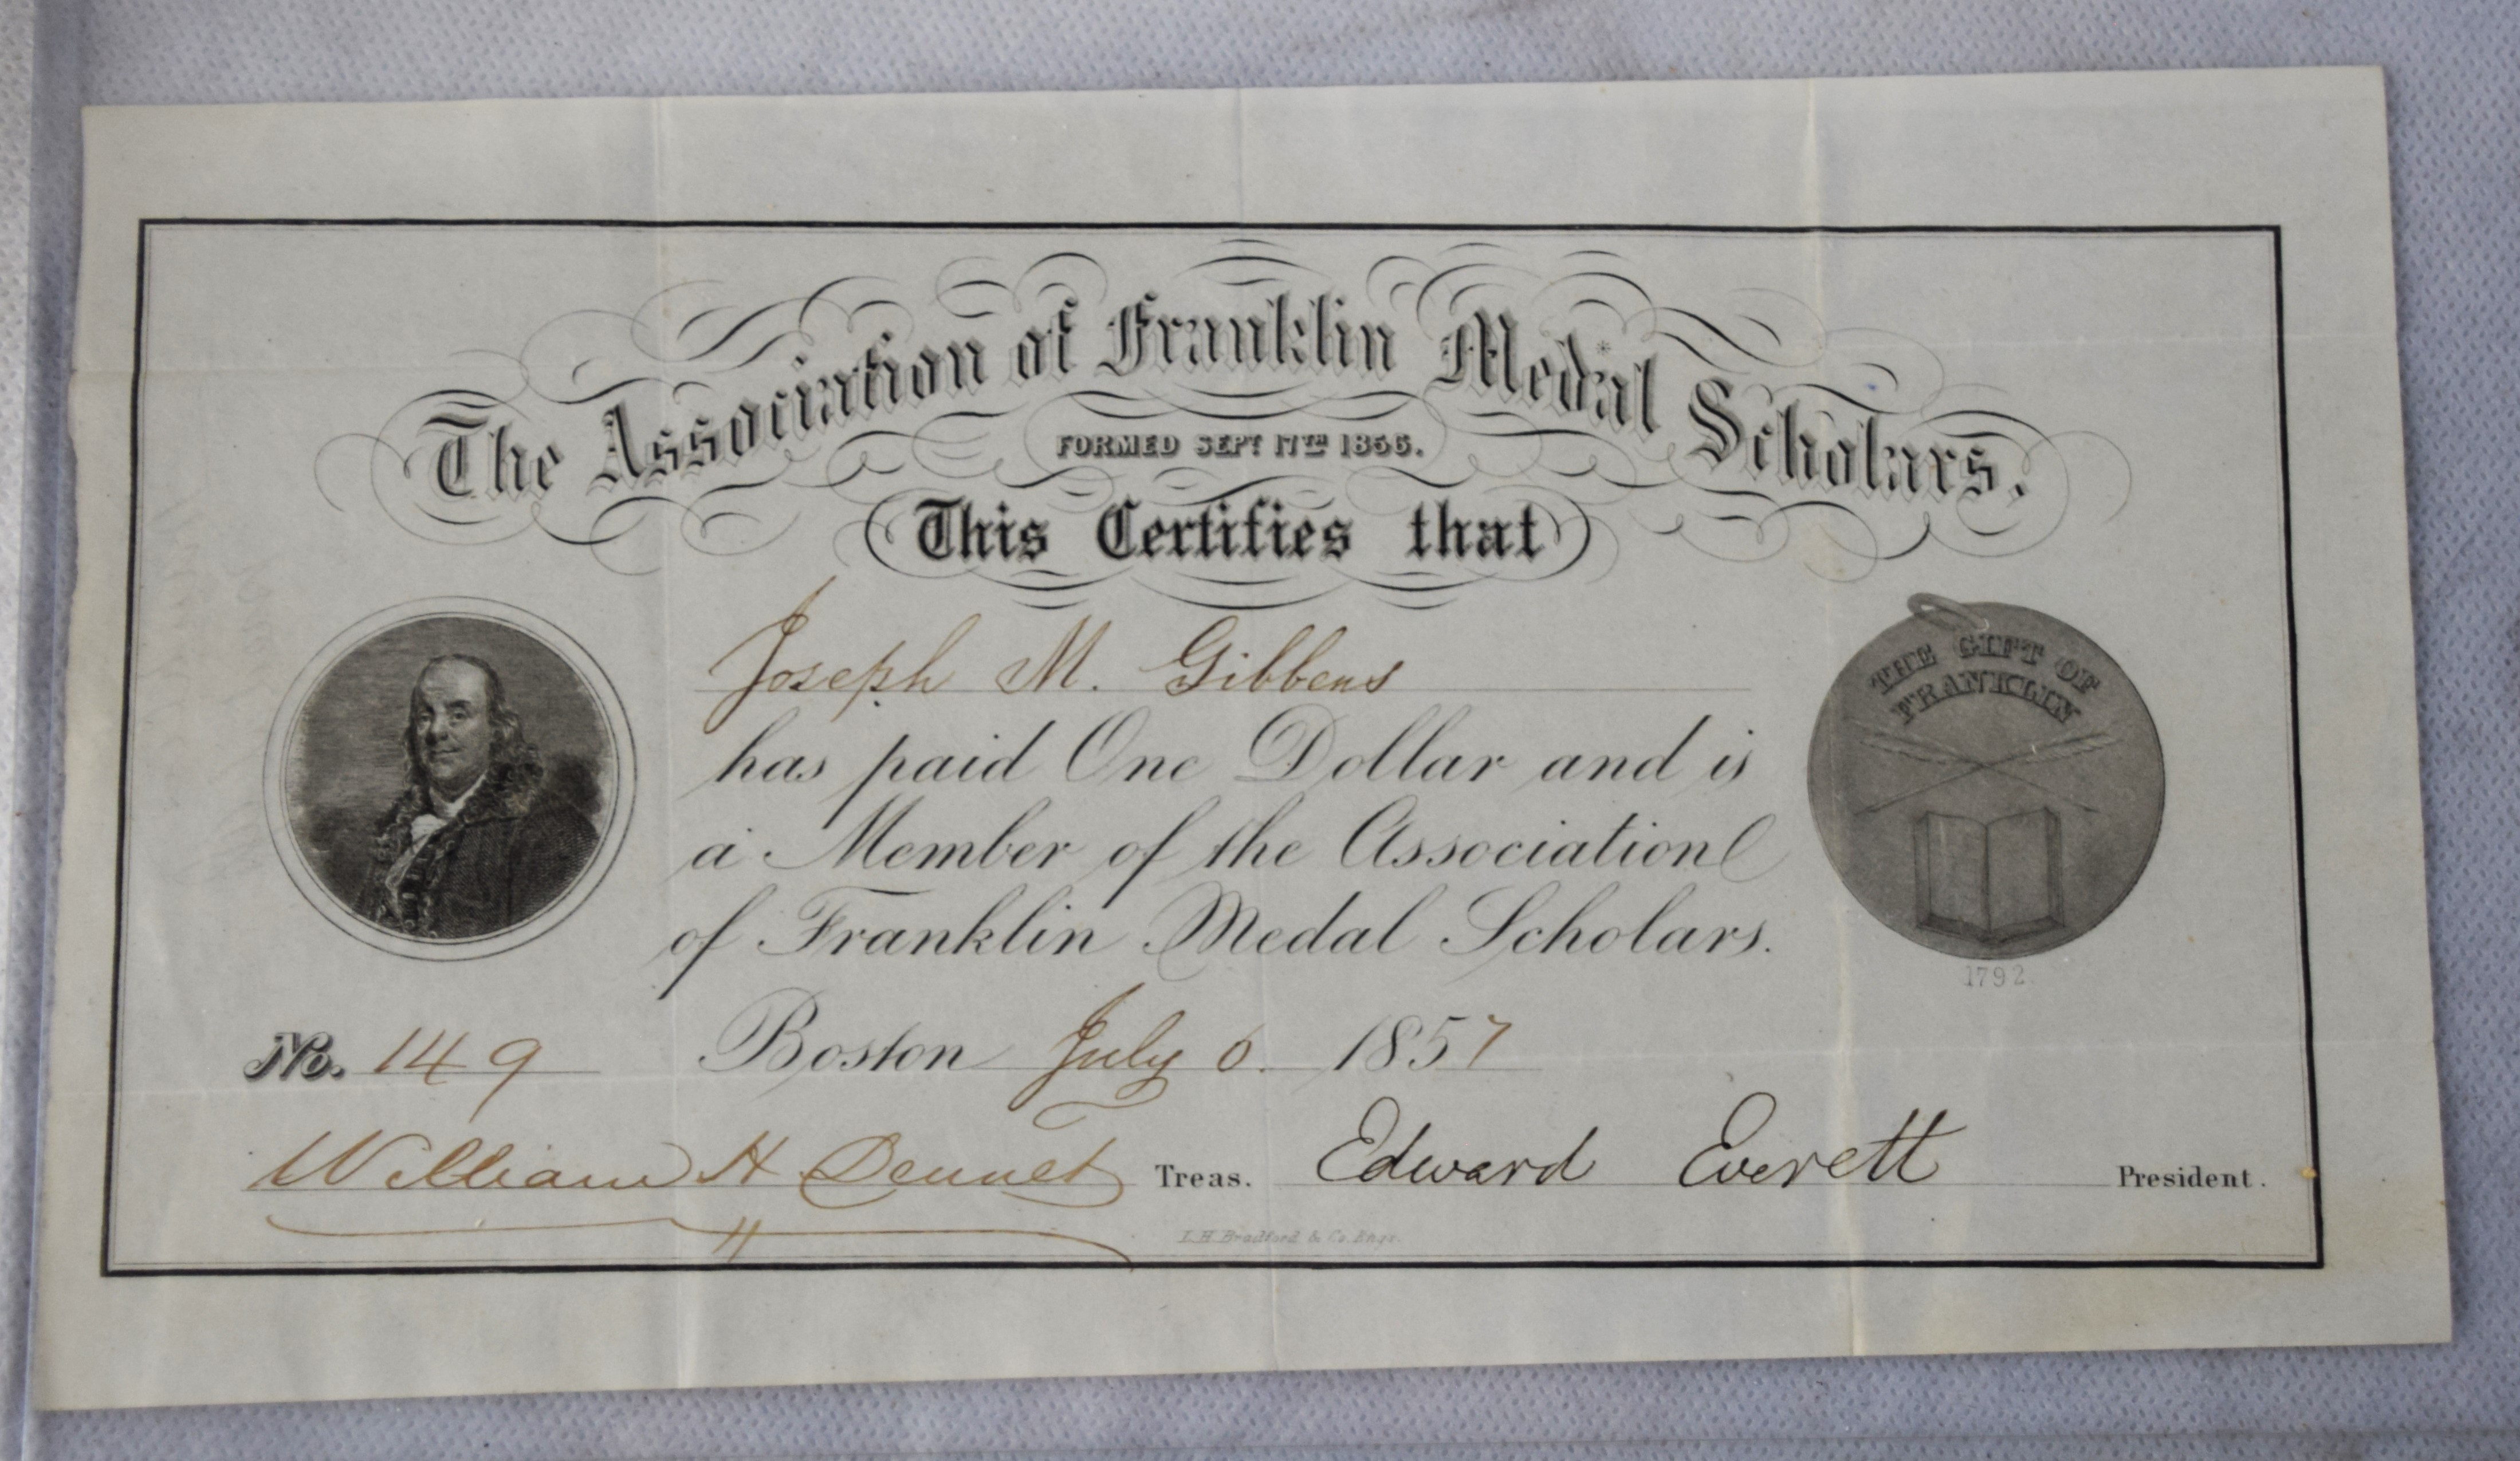 The Association of Franklin Medal Scholars.
FORMED SEPT 17TH 1856.
This Certifies that
Joseph M. Gibbens
has paid One Dollar and is
a Member of the Association
of Franklin Medal Scholars.
THE GIFT OF
FRANKLIN
1792
No. 149 Boston July 6. 1857
William H Dennet Treas. Edward Everett President.
L.H. Bradford & Co. Engs.